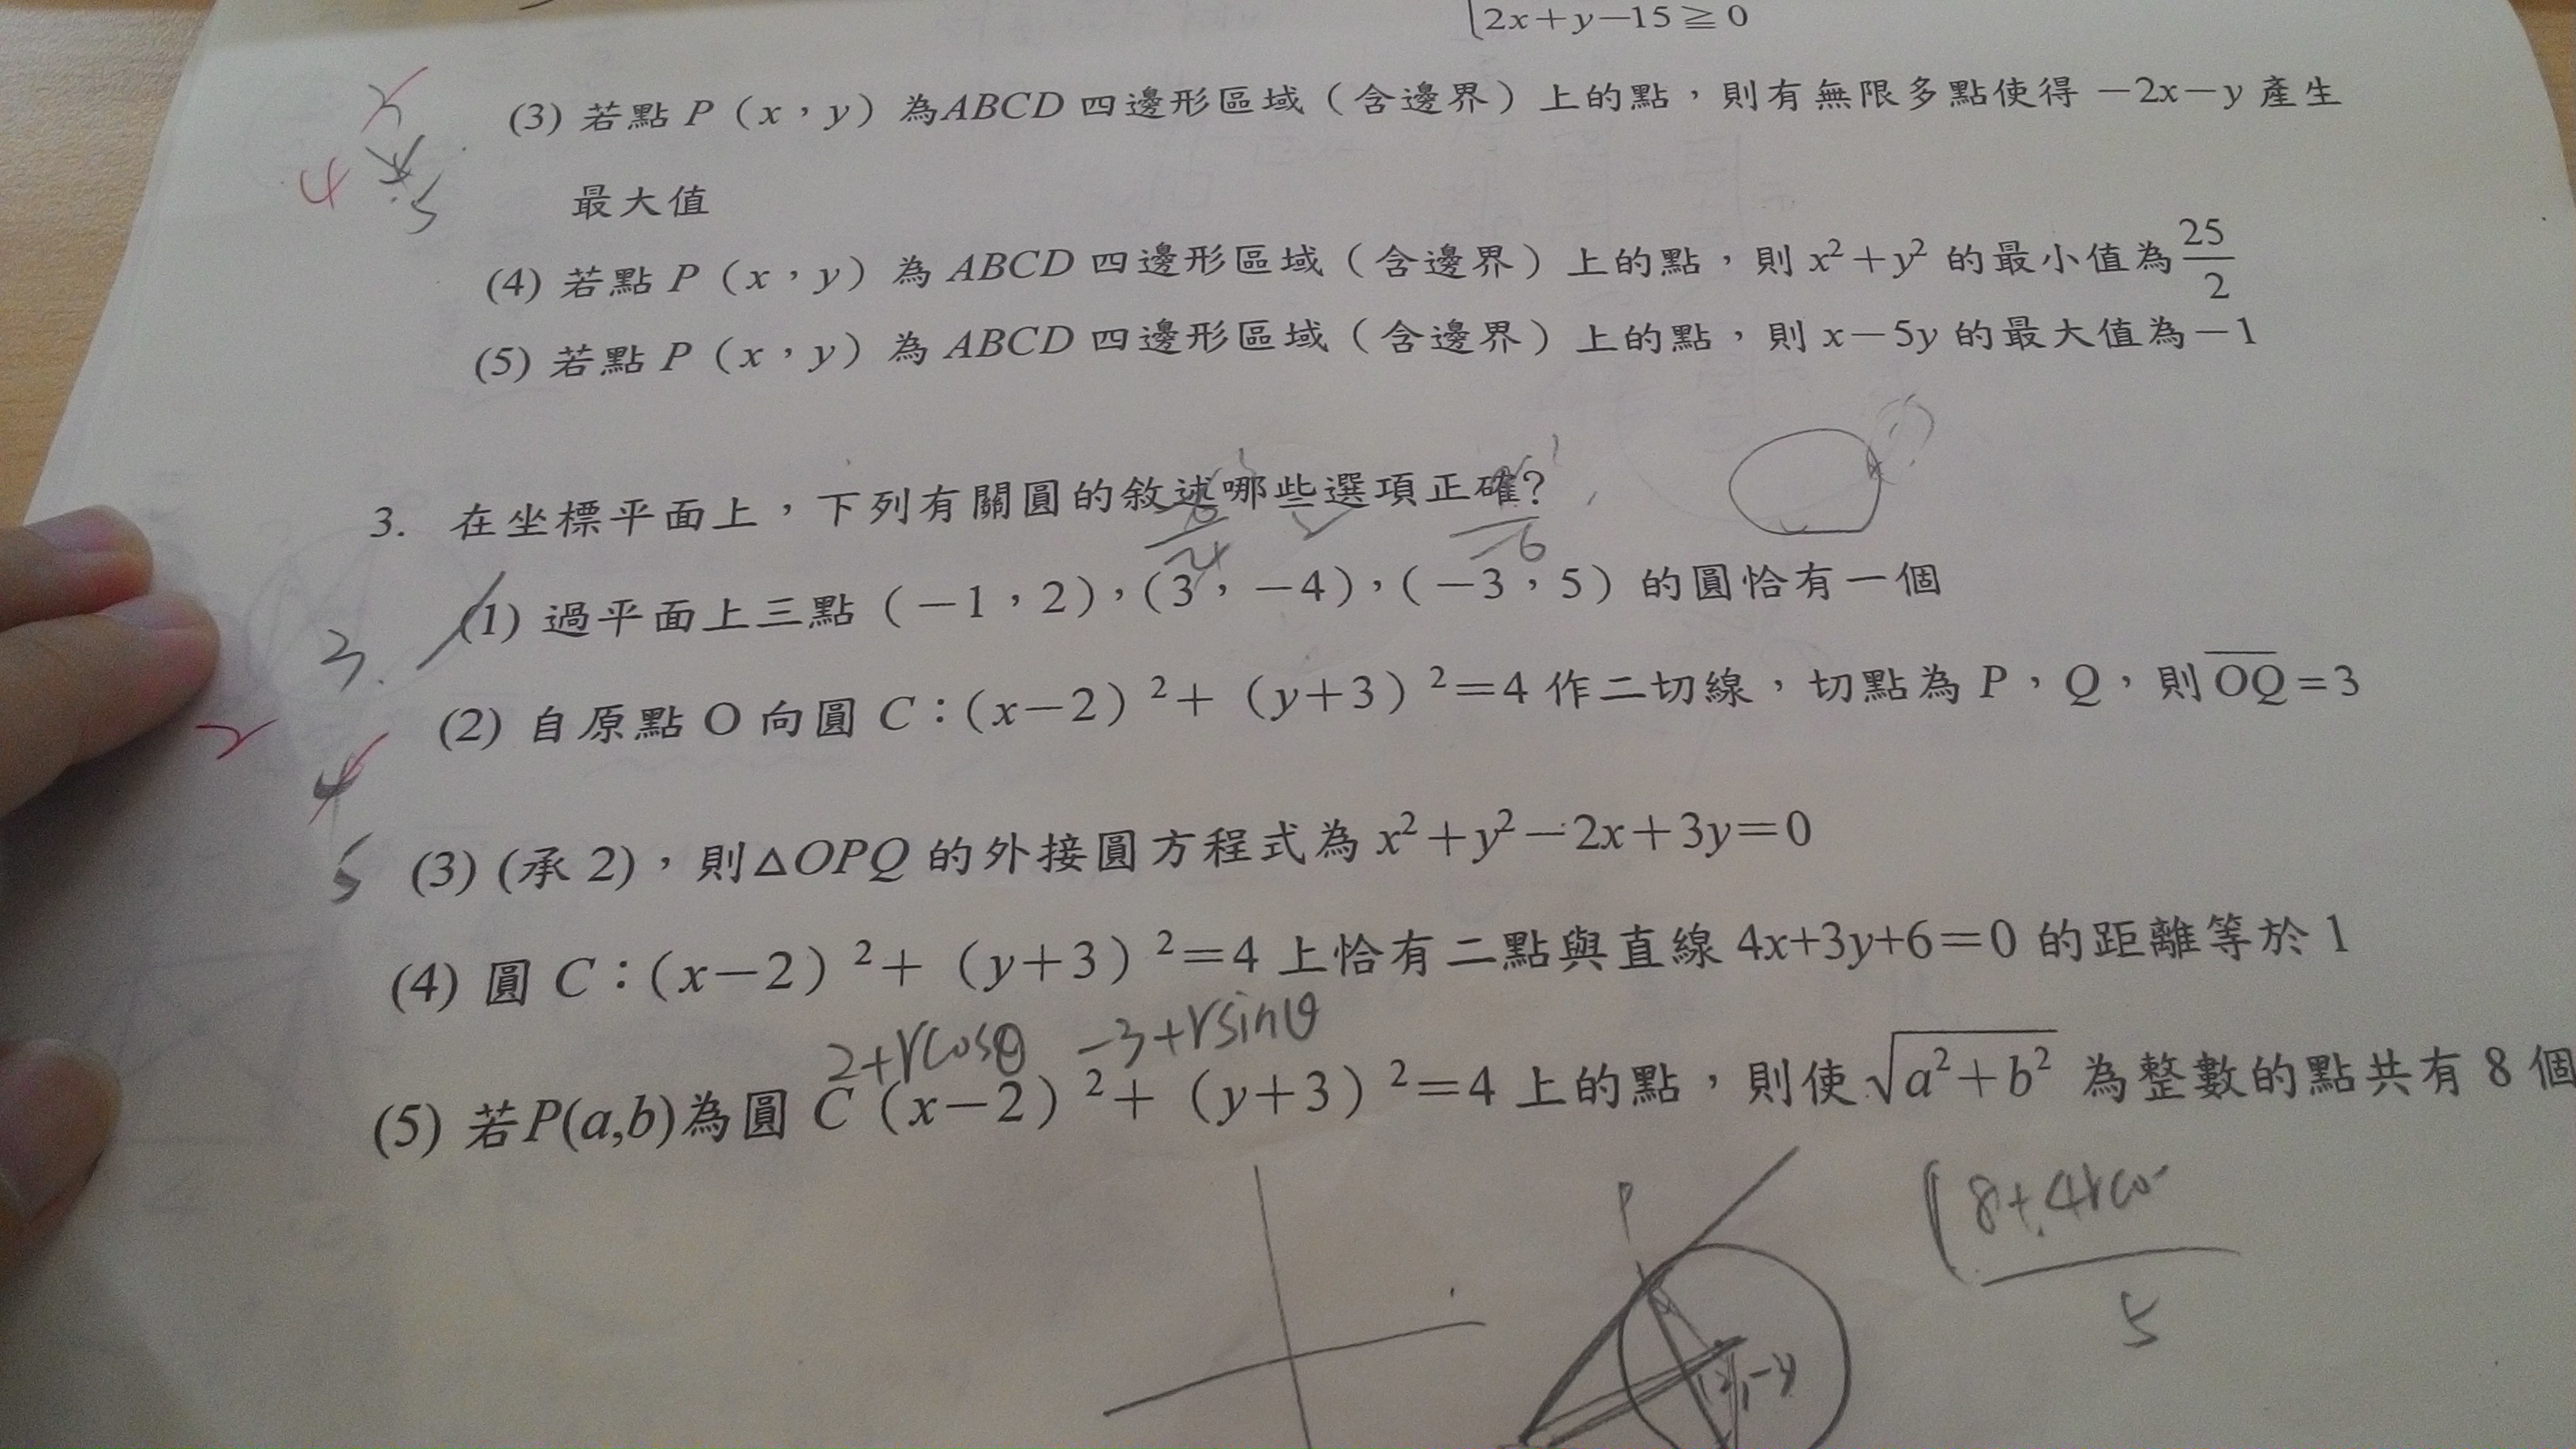 2x+y−15≧0
(3) 若點 P（x，y）為ABCD 四邊形區域（含邊界）上的點，則有無限多點使得 −2x−y 產生
4
5
最大值
(4) 若點 P（x，y）為 ABCD 四邊形區域（含邊界）上的點，則 x²+y² 的最小值為 25/2
(5) 若點 P（x，y）為 ABCD 四邊形區域（含邊界）上的點，則 x−5y 的最大值為−1
3. 在坐標平面上，下列有關圓的敘述哪些選項正確?
(1) 過平面上三點（−1，2），(3，−4)，(−3，5）的圓恰有一個
3.
(2) 自原點 O 向圓 C：(x−2）²+（y+3）²=4 作二切線，切點為 P，Q，則 OQ=3
2
4
5
(3) (承 2)，則△OPQ 的外接圓方程式為 x²+y²−2x+3y=0
(4) 圓 C：(x−2）²+（y+3）²=4 上恰有二點與直線 4x+3y+6=0 的距離等於 1
2+rcosθ −3+rsinθ
(5) 若P(a,b)為圓 C（x−2）²+（y+3）²=4 上的點，則使√a²+b² 為整數的點共有 8 個
P
8+4rco
5